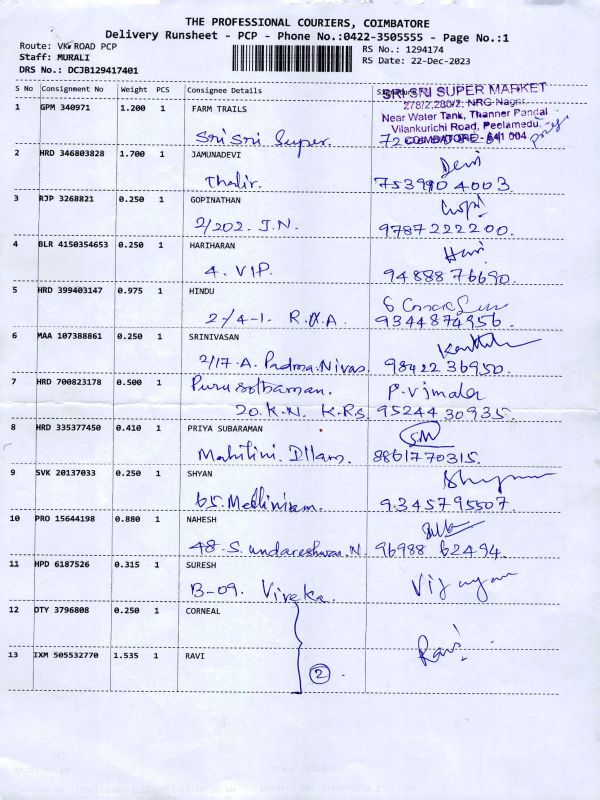 THE PROFESSIONAL COURIERS, COIMBATORE
Delivery Runsheet - PCP - Phone No.:0422-3505555 - Page No.:1
Route: VK ROAD PCP
RS No.: 1294174
Staff: MURALI
RS Date: 22-Dec-2023
DRS No.: DCJB129417401
S No Consignment No Weight PCS Consignee Details
SRI SRI SUPER MARKET
278/2,280/2, NRG Nagar
Near Water Tank, Thanner Pandal
Vilankurichi Road, Peelamedu,
COIMBATORE - 641 004
1 GPM 340971 1.200 1 FARM TRAILS
Sri Sri Super.
2 HRD 346803828 1.700 1 JAMUNADEVI Devi
Thalir. 753990 4003
3 RJP 3268821 0.250 1 GOPINATHAN Gopi
2/202. J.N. 9787222200.
4 BLR 4150354653 0.250 1 HARIHARAN Hari
4. VIP. 94888 76690.
5 HRD 399403147 0.975 1 HINDU
2-/4-1. R.K.A. 9344874956.
6 MAA 107388861 0.250 1 SRINIVASAN
2/17-A. Padma. Nivas 98422 36950.
7 HRD 700823178 0.500 1 Purusothaman. P. Vimala
20. K.N. K-Rs. 95244 30935.
8 HRD 335377450 0.410 1 PRIYA SUBARAMAN
Mahilini. Illam. 8861770315.
9 SVK 20137033 0.250 1 SHYAN
65. 9345795507
10 PRO 15644198 0.880 1 NAHESH
48-S. undareshwar. N. 96988 62494.
11 HPD 6187526 0.315 1 SURESH Vijayan
B-09. Viveka.
12 OTY 3796808 0.250 1 CORNEAL
13 IXM 505532770 1.535 1 RAVI Ravi
2